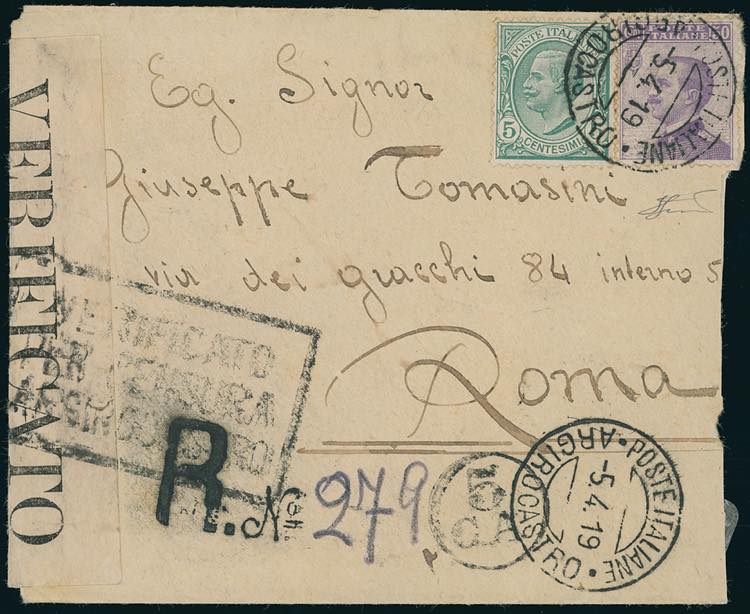 POSTE ITALIANE
5
CENTESIMI
POSTE
ITALIANE
50
POSTE ITALIANE • ARGIROCASTRO •
-5.4.19
Eg. Signor
Giuseppe Tomasini
via dei gracchi 84 interno 5
Roma
VERIFICATO
VERIFICATO
PER CENSURA
R. N.
279
5
C.A
POSTE ITALIANE • ARGIROCASTRO •
-5.4.19